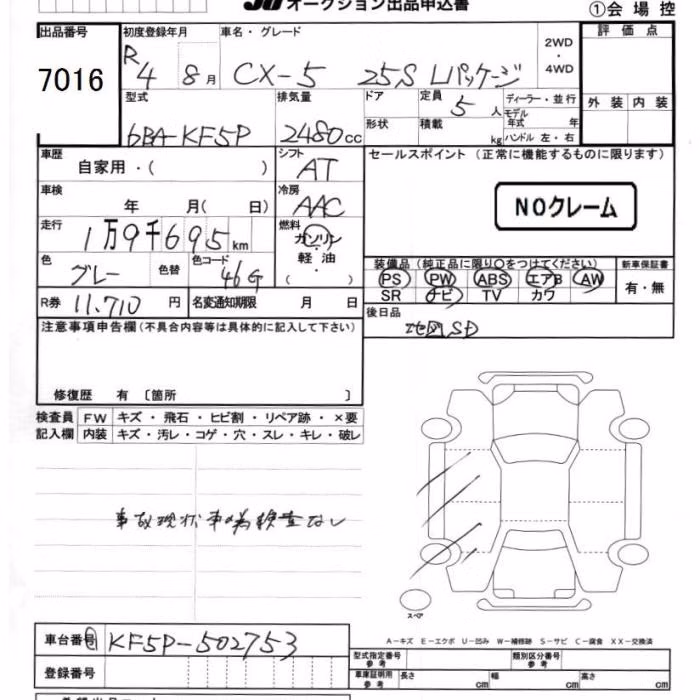 JU オークション出品申込書
①会場控
出品番号 7016
初度登録年月 R4 8月
車名・グレード CX-5 25S Lパッケージ
2WD・4WD
評価点
外装 内装
型式 6BA-KF5P
排気量 2480cc
ドア
定員 5人
ディーラー・並行
形状
積載 kg
モデル年式 年
ハンドル 左・右
車歴 自家用・( )
シフト AT
セールスポイント (正常に機能するものに限ります)
NOクレーム
車検 年 月( 日)
冷房 AAC
走行 1万9千695km
燃料 ガソリン 軽・油 ( )
色 グレー 色替
色コード 46G
装備品 (純正品に限り○をつけてください)
PS PW ABS エアB AW
SR ナビ TV カワ
新車保証書 有・無
R券 11,710円
名変通知期限 月 日
後日品 地図SD
注意事項申告欄 (不具合内容等は具体的に記入して下さい)
修復歴 有 〔箇所 〕
検査員 FW キズ・飛石・ヒビ割・リペア跡・×要
記入欄 内装 キズ・汚レ・コゲ・穴・スレ・キレ・破レ
事故現状車為検査なし
スペア
A-キズ E-エクボ U-凹み W-補修跡 S-サビ C-腐食 XX-交換済
車台番号 KF5P-502753
登録番号
型式指定番号 参考
類別区分番号 参考
車庫証明用 参考 長さ cm 幅 cm 高さ cm